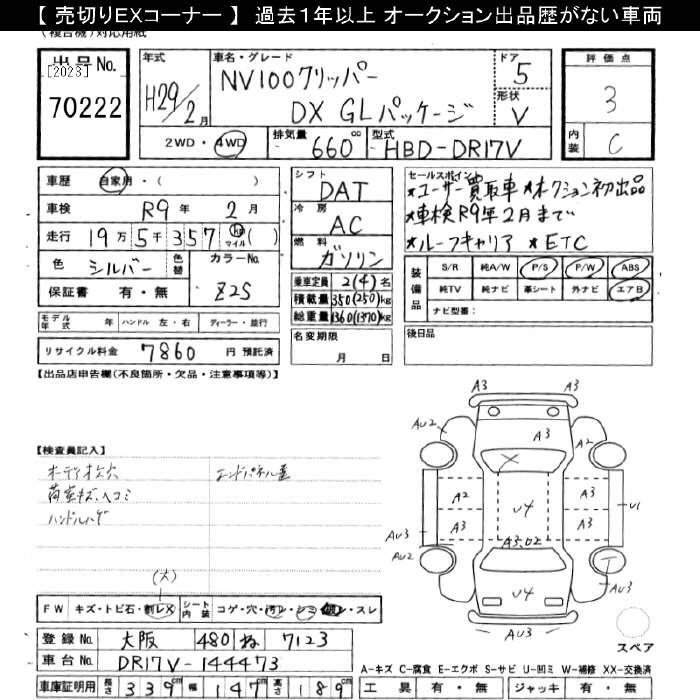 【 売切りEXコーナー 】 過去1年以上 オークション出品歴がない車両
(複合機)対応用紙
出品No. [2023] 70222
年式 H29/2月
車名・グレード NV100クリッパー DX GLパッケージ
ドア 5
形状 V
2WD・4WD
排気量 660cc
型式 HBD-DR17V
評価点 3
内装 C
車歴 自家用・( )
車検 R9年 2月
走行 19万5千357 km マイル ( )
色 シルバー 色替
カラーNo. Z2S
保証書 有・無
モデル年式 年 ハンドル 左・右 ディーラー・並行
リサイクル料金 7860 円 預託済
シフト DAT
冷房 AC
燃料 ガソリン
乗車定員 2(4)名
積載量 350(250)kg
総重量 1360(1370)kg
名変期限 月 日
セールスポイント
★ユーザー買取車 ★オークション初出品
★車検R9年2月まで
★ルーフキャリア ★ETC
装備品 S/R 純A/W P/S P/W ABS
純TV 純ナビ 革シート 外ナビ エアB
ナビ型番:
後日品
【出品店申告欄(不良箇所・欠品・注意事項等)】
【検査員記入】
オーディオ欠穴 エンドパネル歪
荷室キズ、ヘコミ
ハンドルハゲ
(大)
FW キズ・トビ石・割レX
シート内装 コゲ・穴・汚レ・シミ・スレ
登録No. 大阪 480 ね 7123
車台No. DR17V-144473
車庫証明用 長さ 339cm 幅 147cm 高さ 189cm
A3 A3
AU2 A3 A2
X
A2 U4 A3 U1
A3 A3
AU3 A3,U2
AU2
U4 AU3
AU3
スペア
A-キズ C-腐食 E-エクボ S-サビ U-凹ミ W-補修 XX-交換済
工具 有・無 ジャッキ 有・無